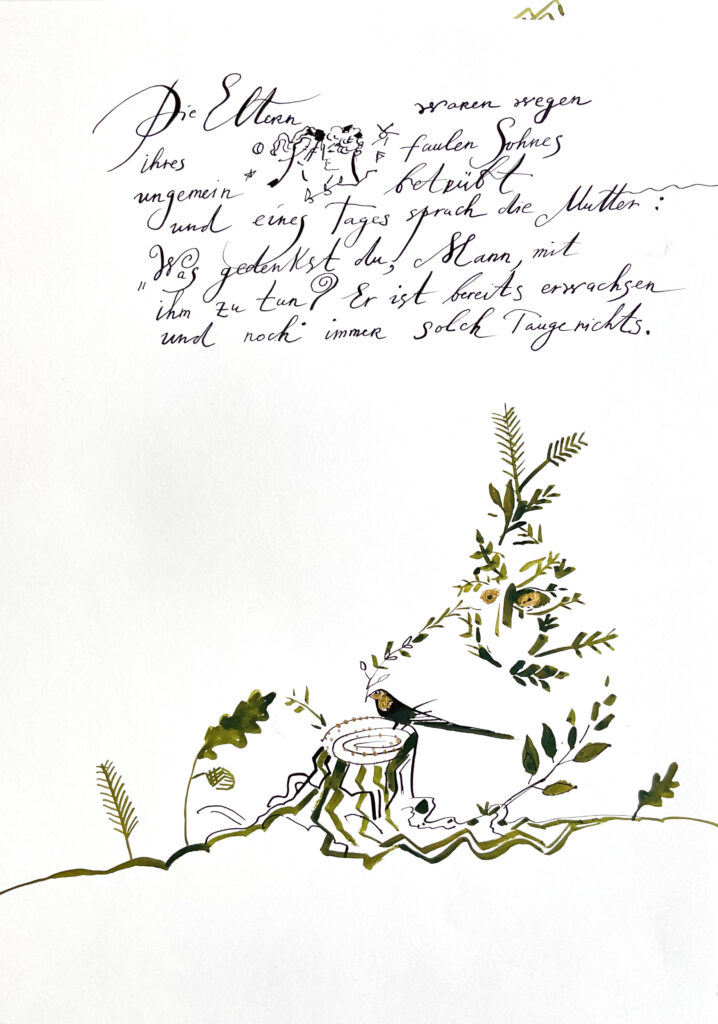 Die Eltern waren wegen
ihres faulen Sohnes
ungemein betrübt
und eines Tages sprach die Mutter:
„Was gedenkst du, Mann, mit
ihm zu tun? Er ist bereits erwachsen
und noch immer solch Taugenichts.